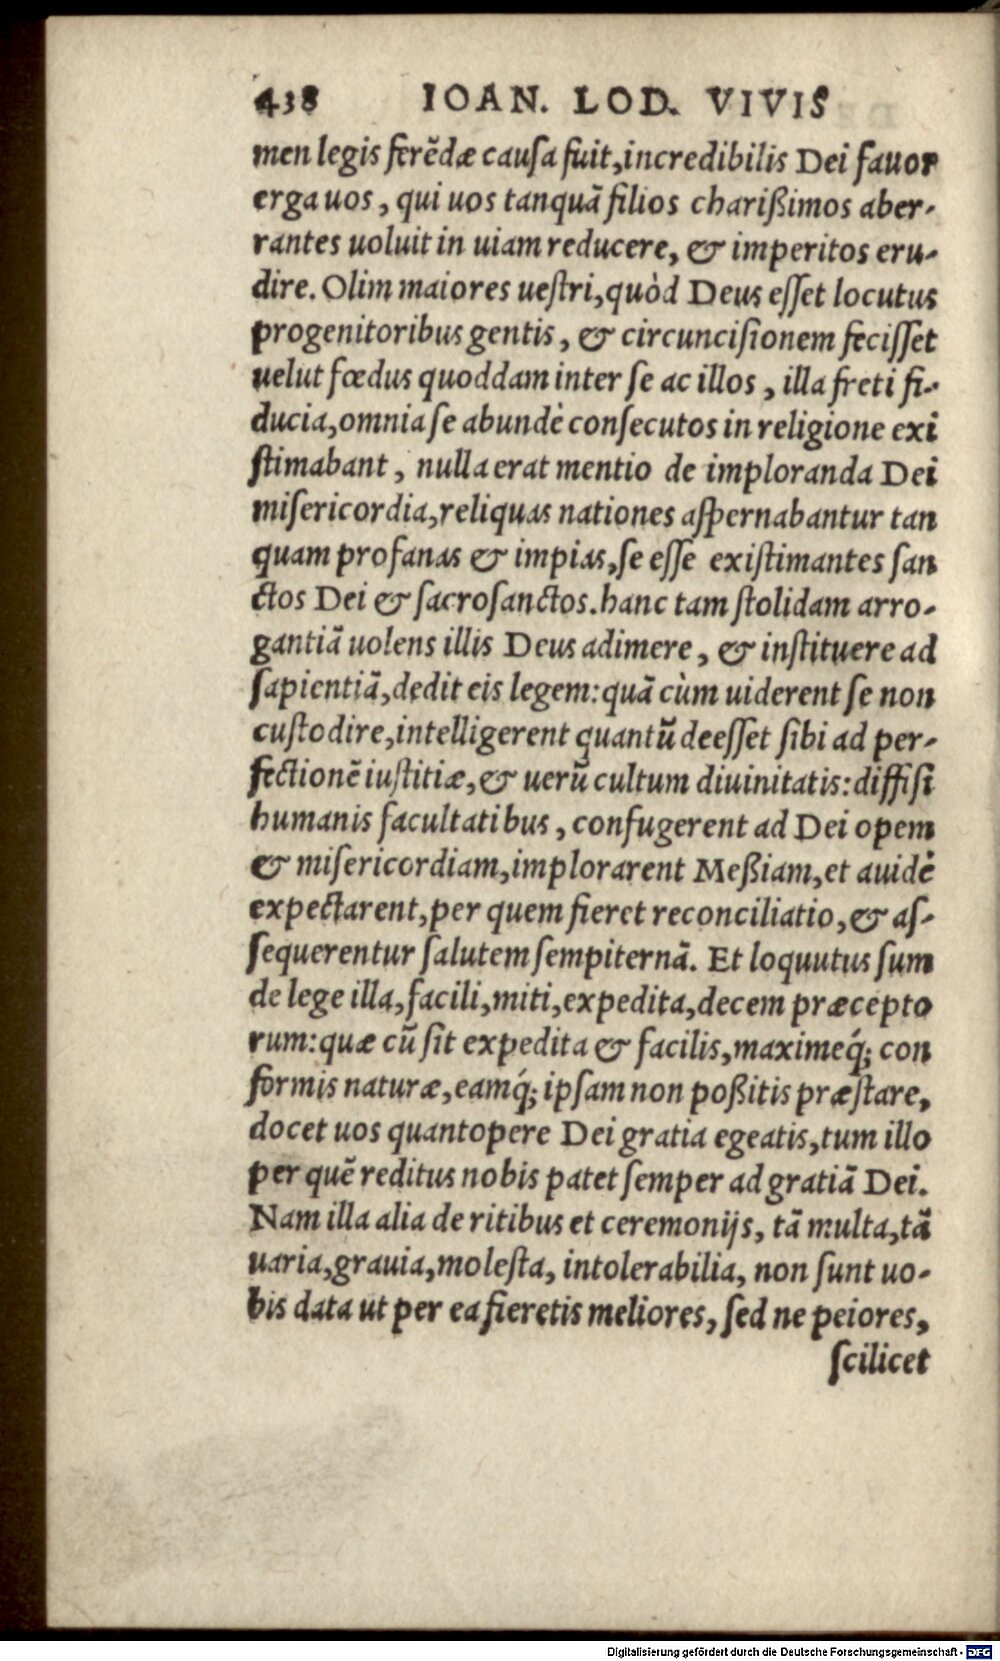 438 IOAN. LOD. VIVIS
men legis ferẽdæ cauſa fuit,incredibilis Dei fauor
erga uos, qui uos tanquã filios charißimos aber-
rantes uoluit in uiam reducere, & imperitos eru-
dire. Olim maiores ueſtri,quòd Deus eſſet locutus
progenitoribus gentis, & circunciſionem feciſſet
uelut fœdus quoddam inter ſe ac illos, illa freti fi-
ducia,omnia ſe abundè conſecutos in religione exi
ſtimabant, nulla erat mentio de imploranda Dei
miſericordia,reliquas nationes aſpernabantur tan
quam profanas & impias,ſe eſſe exiſtimantes ſan
ctos Dei & ſacroſanctos.hanc tam ſtolidam arro-
gantiã uolens illis Deus adimere, & inſtituere ad
ſapientiã,dedit eis legem:quã cùm uiderent ſe non
cuſtodire,intelligerent quantũ deeſſet ſibi ad per-
fectionẽ iuſtitiæ,& uerũ cultum diuinitatis:diffiſi
humanis facultatibus, confugerent ad Dei opem
& miſericordiam,implorarent Meßiam,et auidè
expectarent,per quem fieret reconciliatio,& aſ-
ſequerentur ſalutem ſempiternã. Et loquutus ſum
de lege illa,facili,miti,expedita,decem præcepto
rum:quæ cũ ſit expedita & facilis,maximeq́; con
formis naturæ,eamq́; ipſam non poßitis præſtare,
docet uos quantopere Dei gratia egeatis,tum illo
per quẽ reditus nobis patet ſemper ad gratiã Dei.
Nam illa alia de ritibus et ceremonijs, tã multa,tã
uaria,grauia,moleſta, intolerabilia, non ſunt uo-
bis data ut per ea fieretis meliores, ſed ne peiores,
ſcilicet
Digitalisierung gefördert durch die Deutsche Forschungsgemeinschaft - DFG